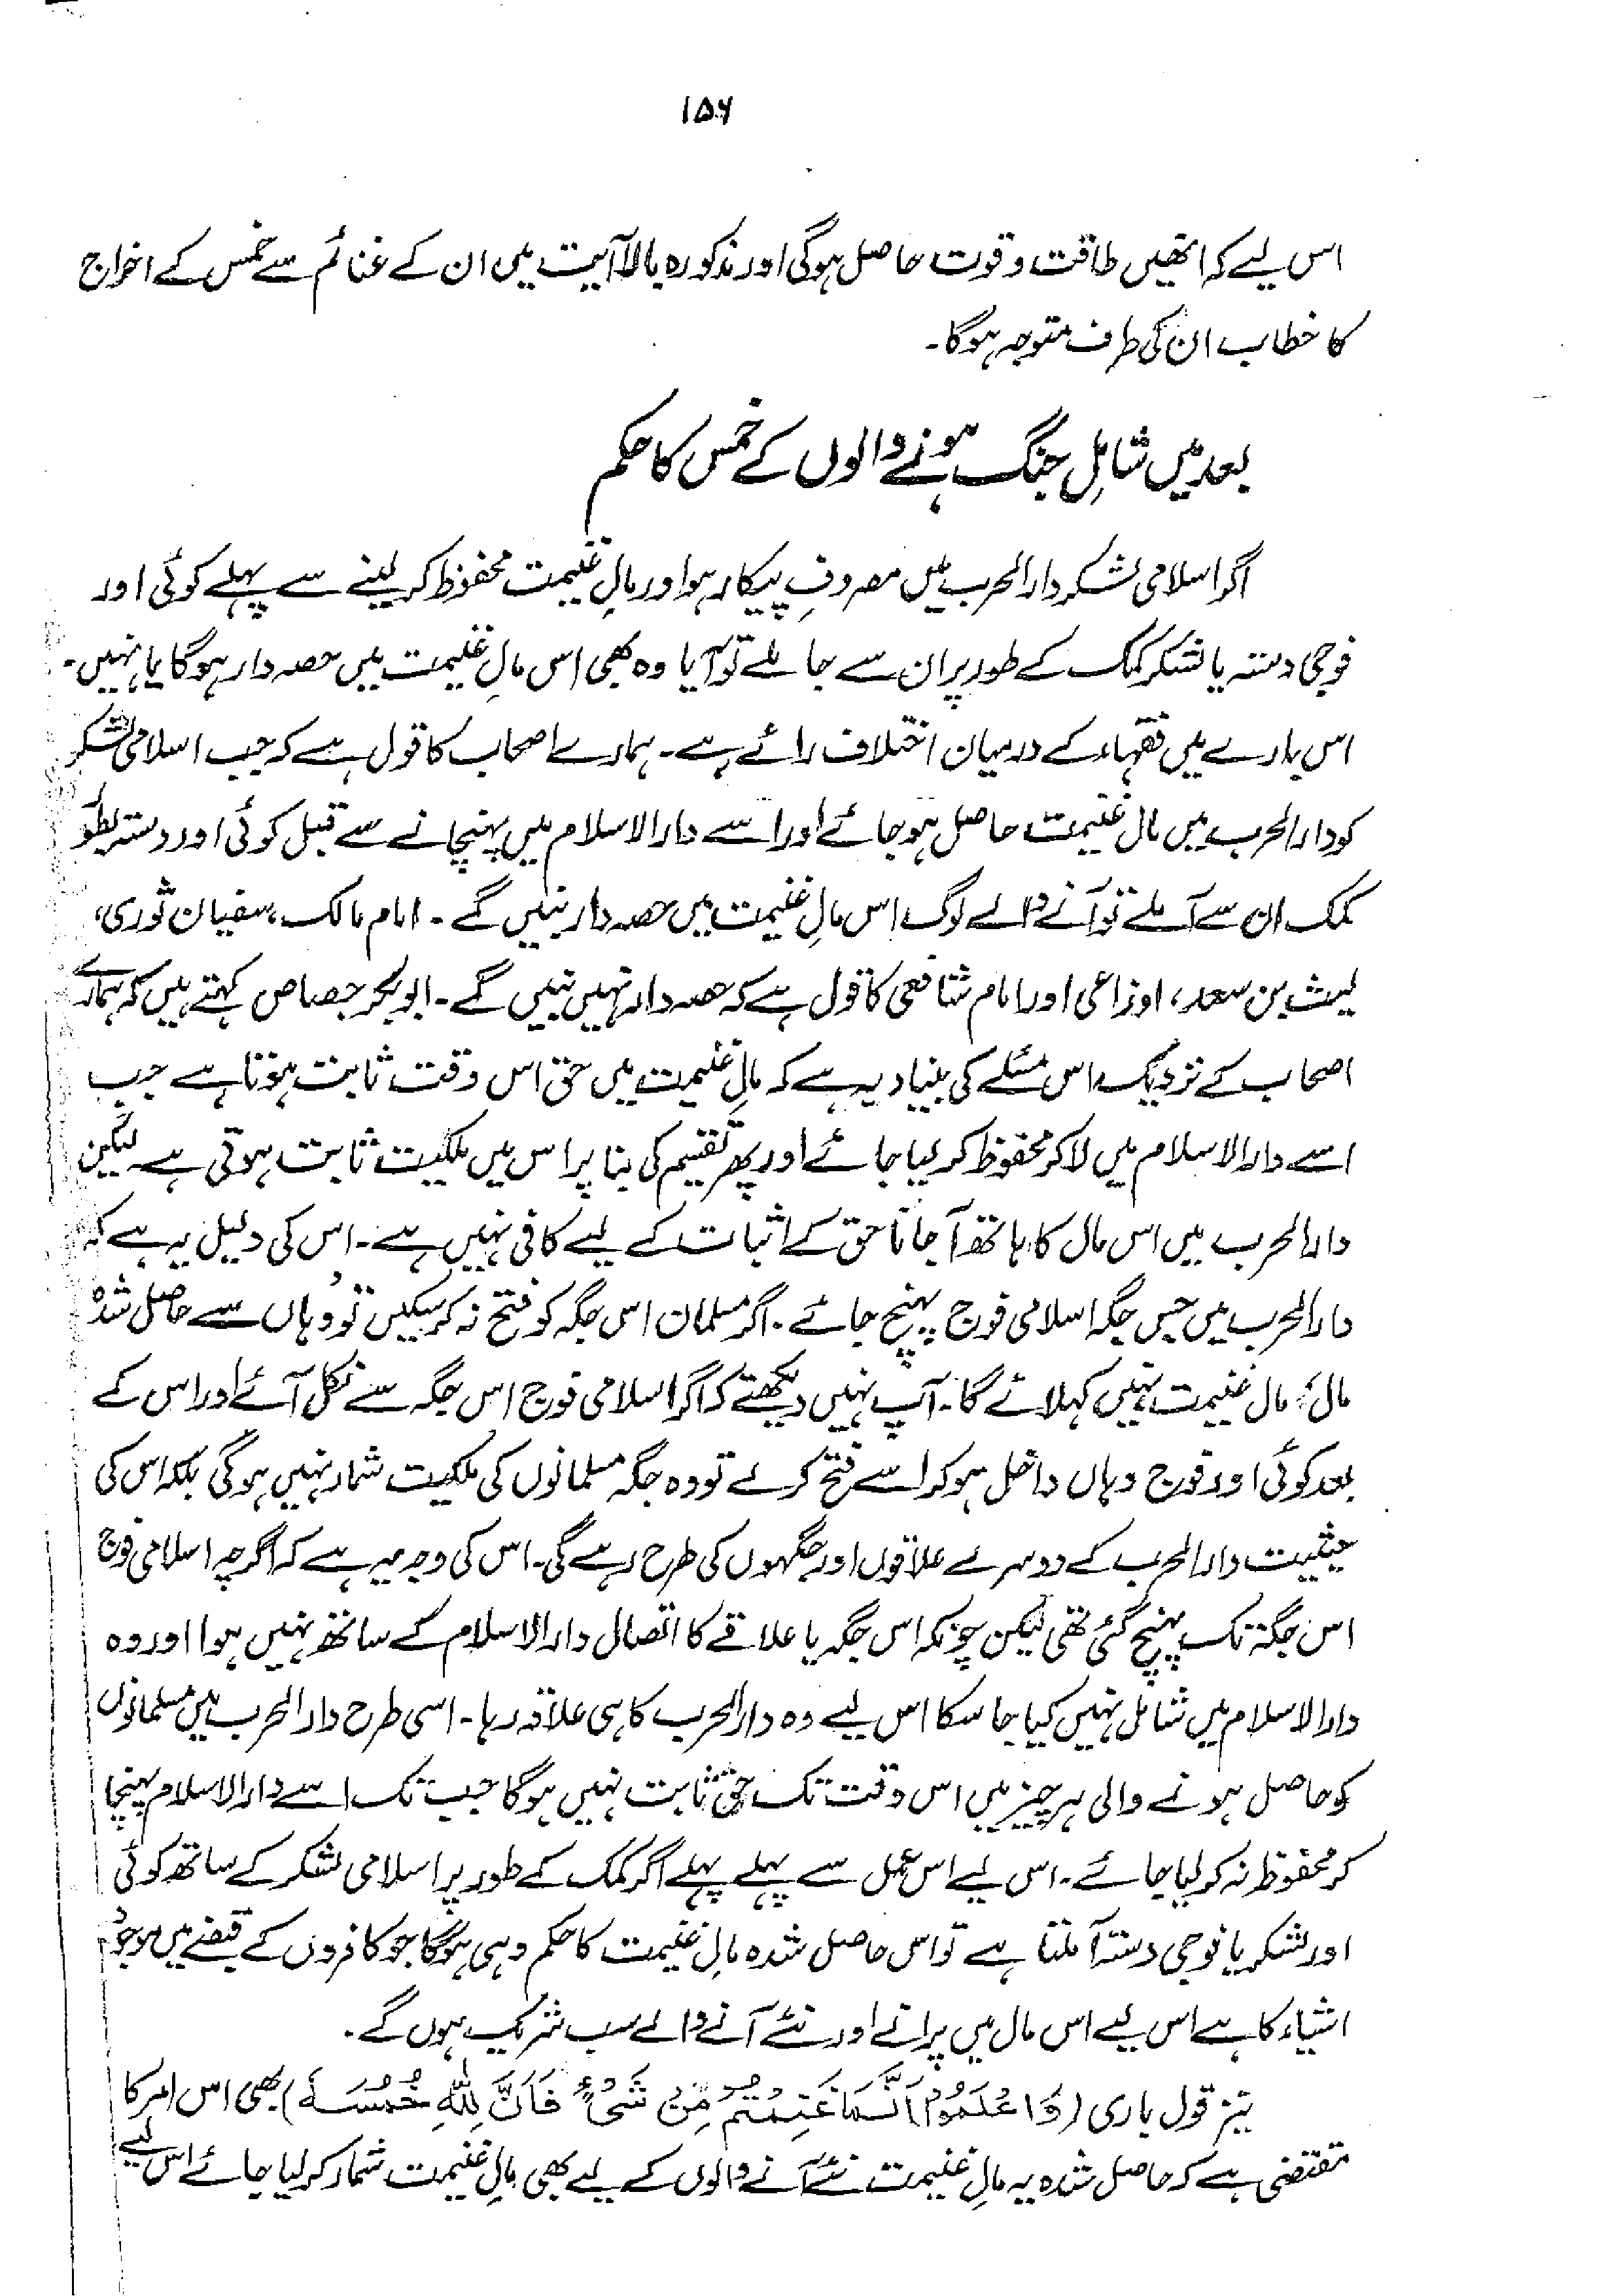 ۱۵۶
اس لیے کہ انھیں طاقت و قوت حاصل ہوگی اور مذکورہ بالا آیت میں ان کے غنائم سے خمس کے اخراج
کا خطاب ان کی طرف متوجہ ہوگا۔
بعد میں شاملِ جنگ ہونے والوں کے خمس کا حکم
اگر اسلامی لشکر دارالحرب میں مصروفِ پیکار ہو اور مالِ غنیمت محفوظ کر لینے سے پہلے کوئی اور
فوجی دستہ یا لشکر کمک کے طور پر ان سے جا ملے تو آیا وہ بھی اس مالِ غنیمت میں حصہ دار ہوگا یا نہیں۔
اس بارے میں فقہاء کے درمیان اختلاف رائے ہے۔ ہمارے اصحاب کا قول ہے کہ جب اسلامی لشکر
کو دارالحرب میں مال غنیمت حاصل ہو جائے اور اسے دارالاسلام میں پہنچانے سے قبل کوئی اور دستہ بطور
کمک ان سے آ ملے تو آنے والے لوگ اس مالِ غنیمت میں حصہ دار بنیں گے۔ امام مالک، سفیان ثوری،
لیث بن سعد، اوزاعی اور امام شافعی کا قول ہے کہ حصہ دار نہیں بنیں گے۔ ابوبکر جصاص کہتے ہیں کہ ہمارے
اصحاب کے نزدیک اس مسئلے کی بنیاد یہ ہے کہ مالِ غنیمت میں حق اس وقت ثابت ہوتا ہے جب
اسے دارالاسلام میں لاکر محفوظ کر لیا جائے اور پھر تقسیم کی بنا پر اس میں ملکیت ثابت ہوتی ہے۔ لیکن
دارالحرب میں اس مال کا ہاتھ آ جانا حق کے اثبات کے لیے کافی نہیں ہے۔ اس کی دلیل یہ ہے کہ
دارالحرب میں جس جگہ اسلامی فوج پہنچ جائے۔ اگر مسلمان اس جگہ کو فتح نہ کرسکیں تو وہاں سے حاصل شدہ
مال، مال غنیمت نہیں کہلائے گا۔ آپ نہیں دیکھتے کہ اگر اسلامی فوج اس جگہ سے نکل آئے اور اس کے
بعد کوئی اور فوج وہاں داخل ہوکر اسے فتح کرلے تو وہ جگہ مسلمانوں کی ملکیت شمار نہیں ہوگی بلکہ اس کی
حیثیت دارالحرب کے دوسرے علاقوں اور جگہوں کی طرح رہے گی۔ اس کی وجہ یہ ہے کہ اگرچہ اسلامی فوج
اس جگہ تک پہنچ گئی تھی لیکن چونکہ اس جگہ یا علاقے کا اتصال دارالاسلام کے ساتھ نہیں ہوا اور وہ
دارالاسلام میں شامل نہیں کیا جا سکا اس لیے وہ دارالحرب کا ہی علاقہ رہا۔ اسی طرح دارالحرب میں مسلمانوں
کو حاصل ہونے والی ہر چیز میں اس وقت تک حق ثابت نہیں ہوگا جب تک اسے دارالاسلام پہنچا
کر محفوظ نہ کرلیا جائے۔ اس لیے اس عمل سے پہلے پہلے اگر کمک کے طور پر اسلامی لشکر کے ساتھ کوئی
اور لشکر یا فوجی دستہ آ ملتا ہے تو اس حاصل شدہ مالِ غنیمت کا حکم وہی ہوگا جو کافروں کے قبضے میں موجود
اشیاء کا ہے اس لیے اس مال میں پرانے اور نئے آنے والے سب شریک ہوں گے۔
نیز قول باری (وَاعْلَمُوْا اَنَّمَا غَنِمْتُمْ مِّنْ شَیْءٍ فَاَنَّ لِلّٰهِ خُمُسَهٗ) بھی اس امر کا
مقتضی ہے کہ حاصل شدہ یہ مالِ غنیمت نئے آنے والوں کے لیے بھی مالِ غنیمت شمار کر لیا جائے اس لیے